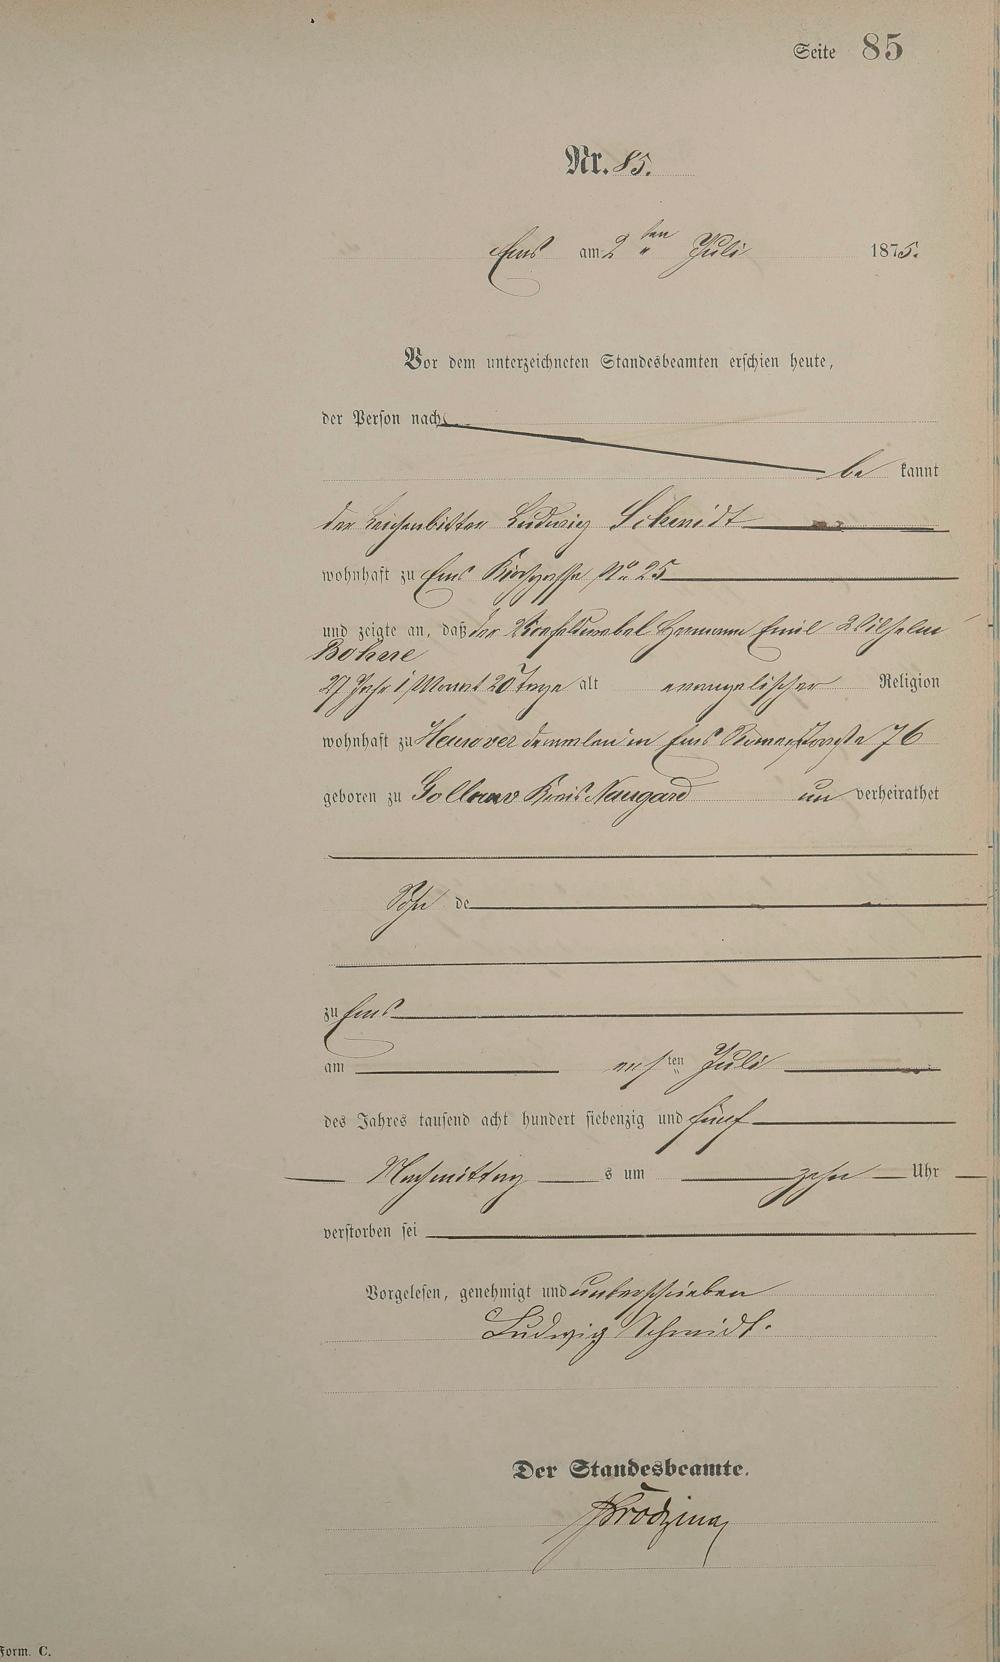 Seite 85
Nr. 85.
Ems am 2 ten Juli 1875.
Vor dem unterzeichneten Standesbeamten erschien heute,
der Person nach
be kannt
der Leichenbitter Ludwig Schmidt
wohnhaft zu Ems Kirchgasse No 25
und zeigte an, daß der Hermann Emil Wilhelm
Bohne
27 Jahr 1 Monat 20 Tage alt evangelischer Religion
wohnhaft zu Hanover in Ems 76
geboren zu Gollnow Kreis Naugard un verheirathet
Sohn de
zu Ems
am ersten Juli
des Jahres tausend acht hundert siebenzig und fünf
Nachmittag s um zehn Uhr
verstorben sei
Vorgelesen, genehmigt und unterschrieben
Ludwig Schmidt.
Der Standesbeamte.
Form. C.